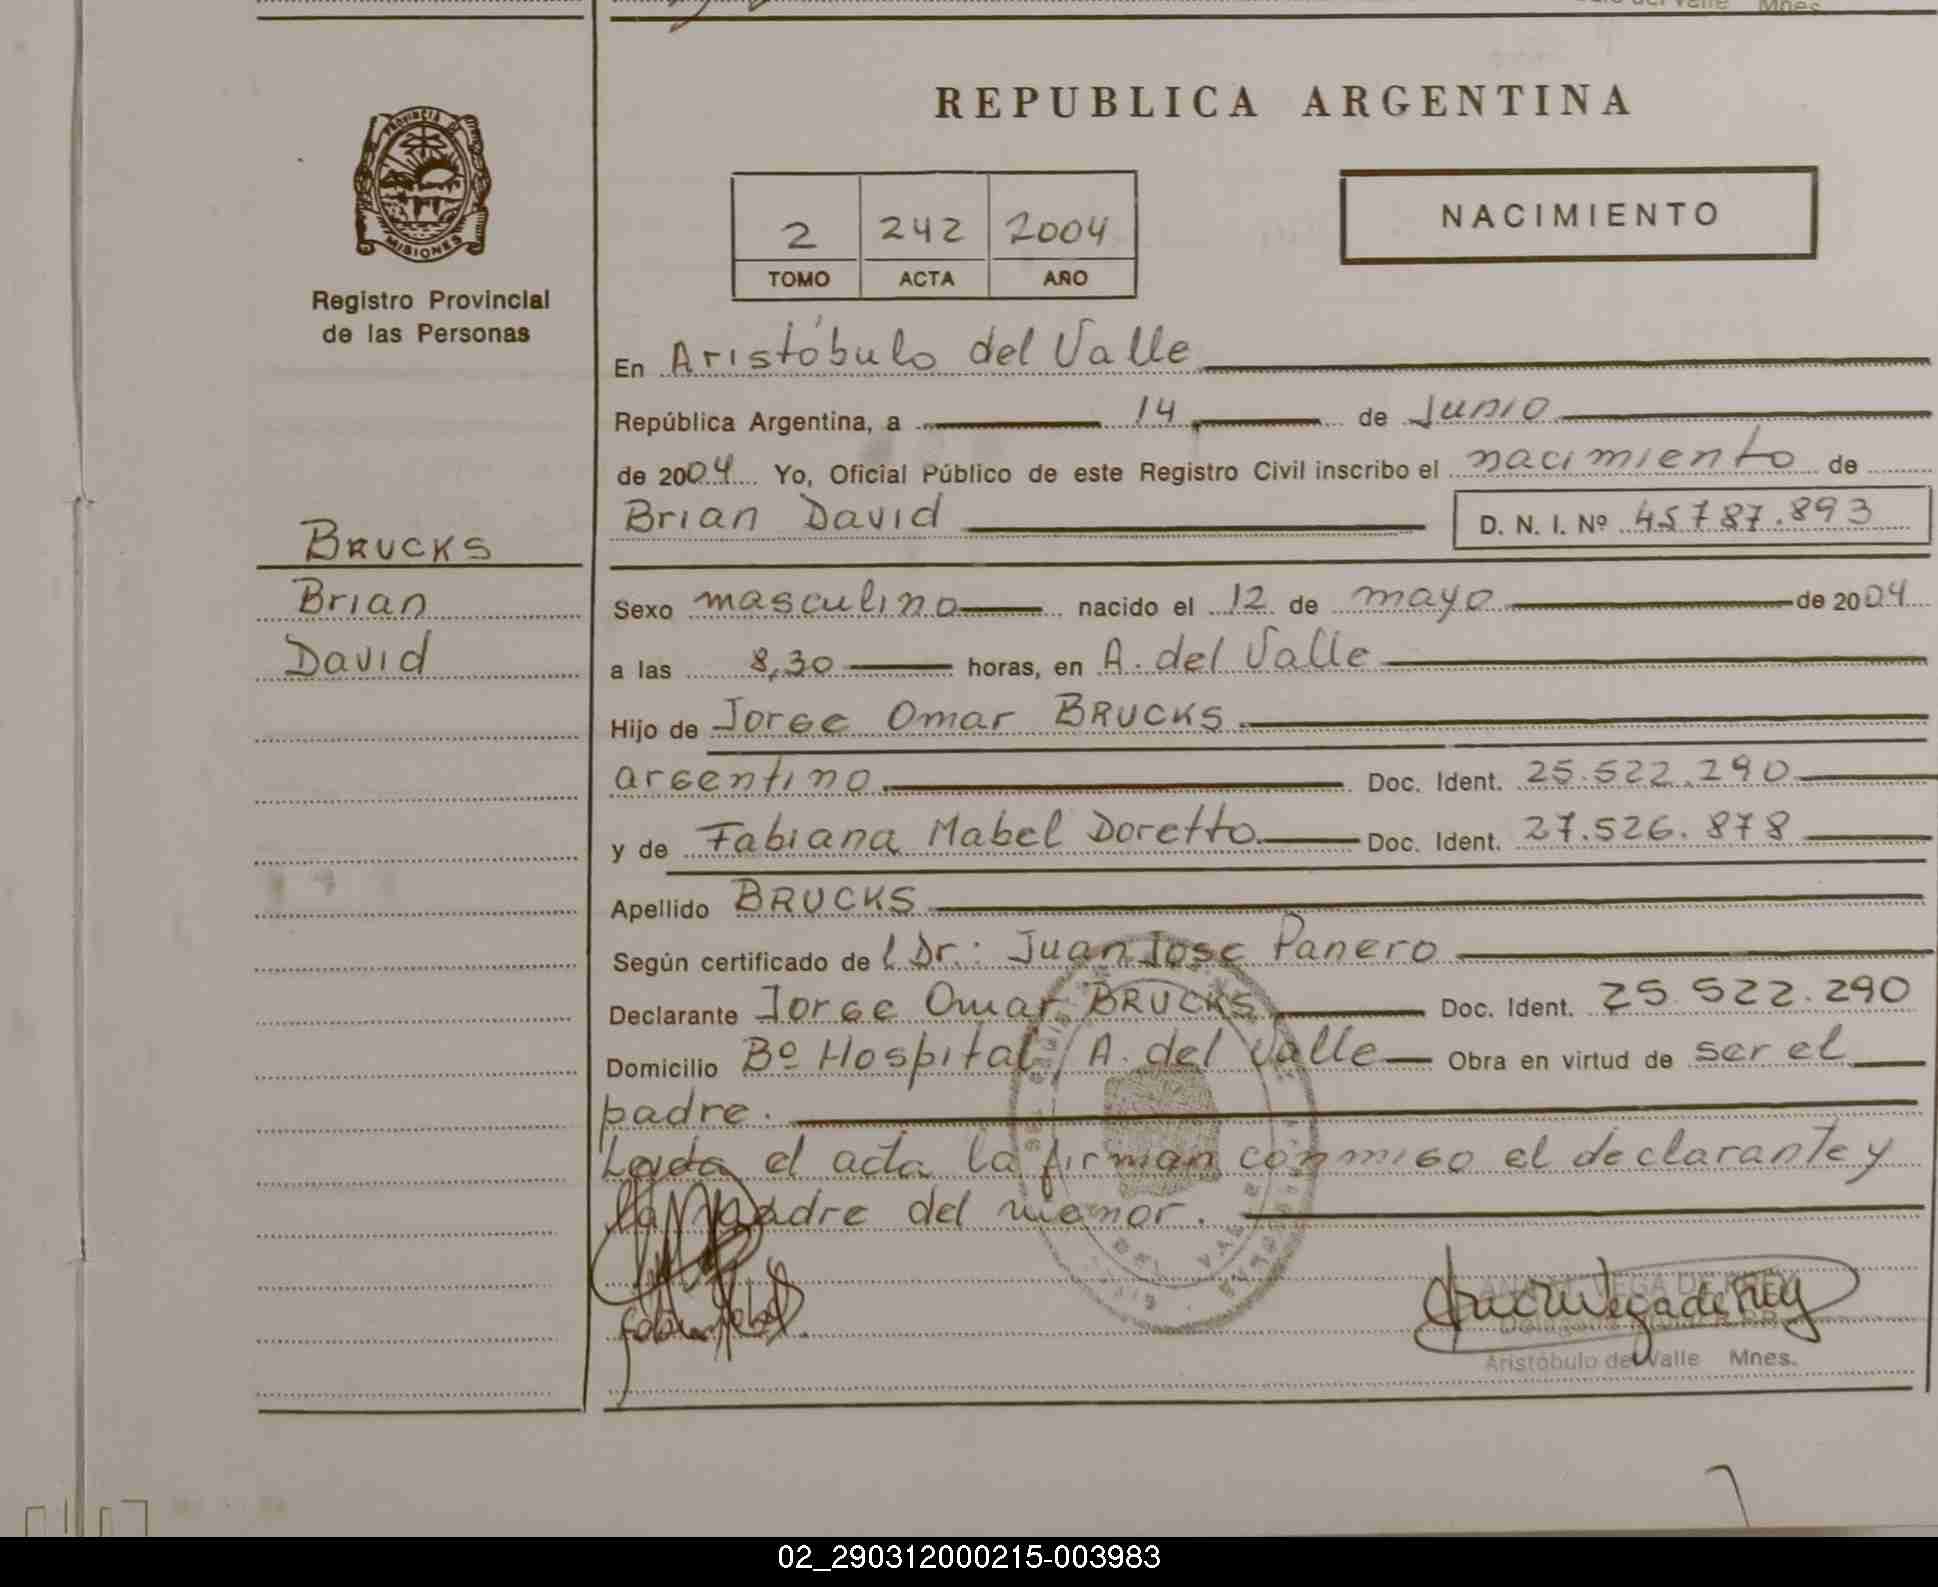 REPUBLICA ARGENTINA
PROVINCIA DE
MISIONES
Registro Provincial
de las Personas
2 242 2004
TOMO ACTA AÑO
NACIMIENTO
En Aristóbulo del Valle
República Argentina, a 14 de Junio
de 2004 Yo, Oficial Público de este Registro Civil inscribo el nacimiento de
Brian David D. N. I. Nº 45787.893
BRUCKS
Brian
David
Sexo masculino nacido el 12 de mayo de 2004
a las 8,30 horas, en A. del Valle
Hijo de Jorge Omar BRUCKS
argentino Doc. Ident. 25.522.290
y de Fabiana Mabel Doretto Doc. Ident. 27.526.878
Apellido BRUCKS
Según certificado del Dr.: Juan Jose Panero
Declarante Jorge Omar BRUCKS Doc. Ident. 25.522.290
Domicilio Bº Hospital, A. del Valle Obra en virtud de ser el
padre.
Leida el acta la firman conmigo el declarante y
la Madre del menor.
Aristóbulo del Valle Mnes.
02_290312000215-003983